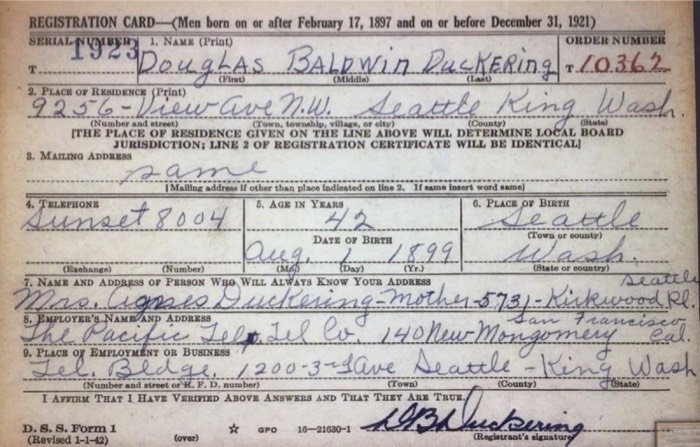 REGISTRATION CARD—(Men born on or after February 17, 1897 and on or before December 31, 1921)
SERIAL NUMBER 1. NAME (Print) ORDER NUMBER
T 1923 DOUGLAS BALDWIN DUCKERING T 10362
(First) (Middle) (Last)
2. PLACE OF RESIDENCE (Print)
9256-View Ave N.W. Seattle King Wash.
(Number and street) (Town, township, village, or city) (County) (State)
[THE PLACE OF RESIDENCE GIVEN ON THE LINE ABOVE WILL DETERMINE LOCAL BOARD
JURISDICTION; LINE 2 OF REGISTRATION CERTIFICATE WILL BE IDENTICAL]
3. MAILING ADDRESS
same
[Mailing address if other than place indicated on line 2. If same insert word same]
4. TELEPHONE 5. AGE IN YEARS 6. PLACE OF BIRTH
Sunset 8004 42 Seattle
DATE OF BIRTH (Town or county)
Aug. 1 1899 Wash.
(Exchange) (Number) (Mo.) (Day) (Yr.) (State or country)
7. NAME AND ADDRESS OF PERSON WHO WILL ALWAYS KNOW YOUR ADDRESS Seattle
Mrs. Agnes Duckering-Mother-5731-Kirkwood Pl.
8. EMPLOYER'S NAME AND ADDRESS San Francisco
The Pacific Tel & Tel Co. 140 New Montgomery Cal.
9. PLACE OF EMPLOYMENT OR BUSINESS
Tel. Bldge. 1200-3-Ave Seattle - King Wash
(Number and street or R. F. D. number) (Town) (County) (State)
I AFFIRM THAT I HAVE VERIFIED ABOVE ANSWERS AND THAT THEY ARE TRUE.
D. S. S. Form 1
(Revised 1-1-42) (over) ☆ GPO 16—21630-1 D B Duckering
(Registrant's signature)